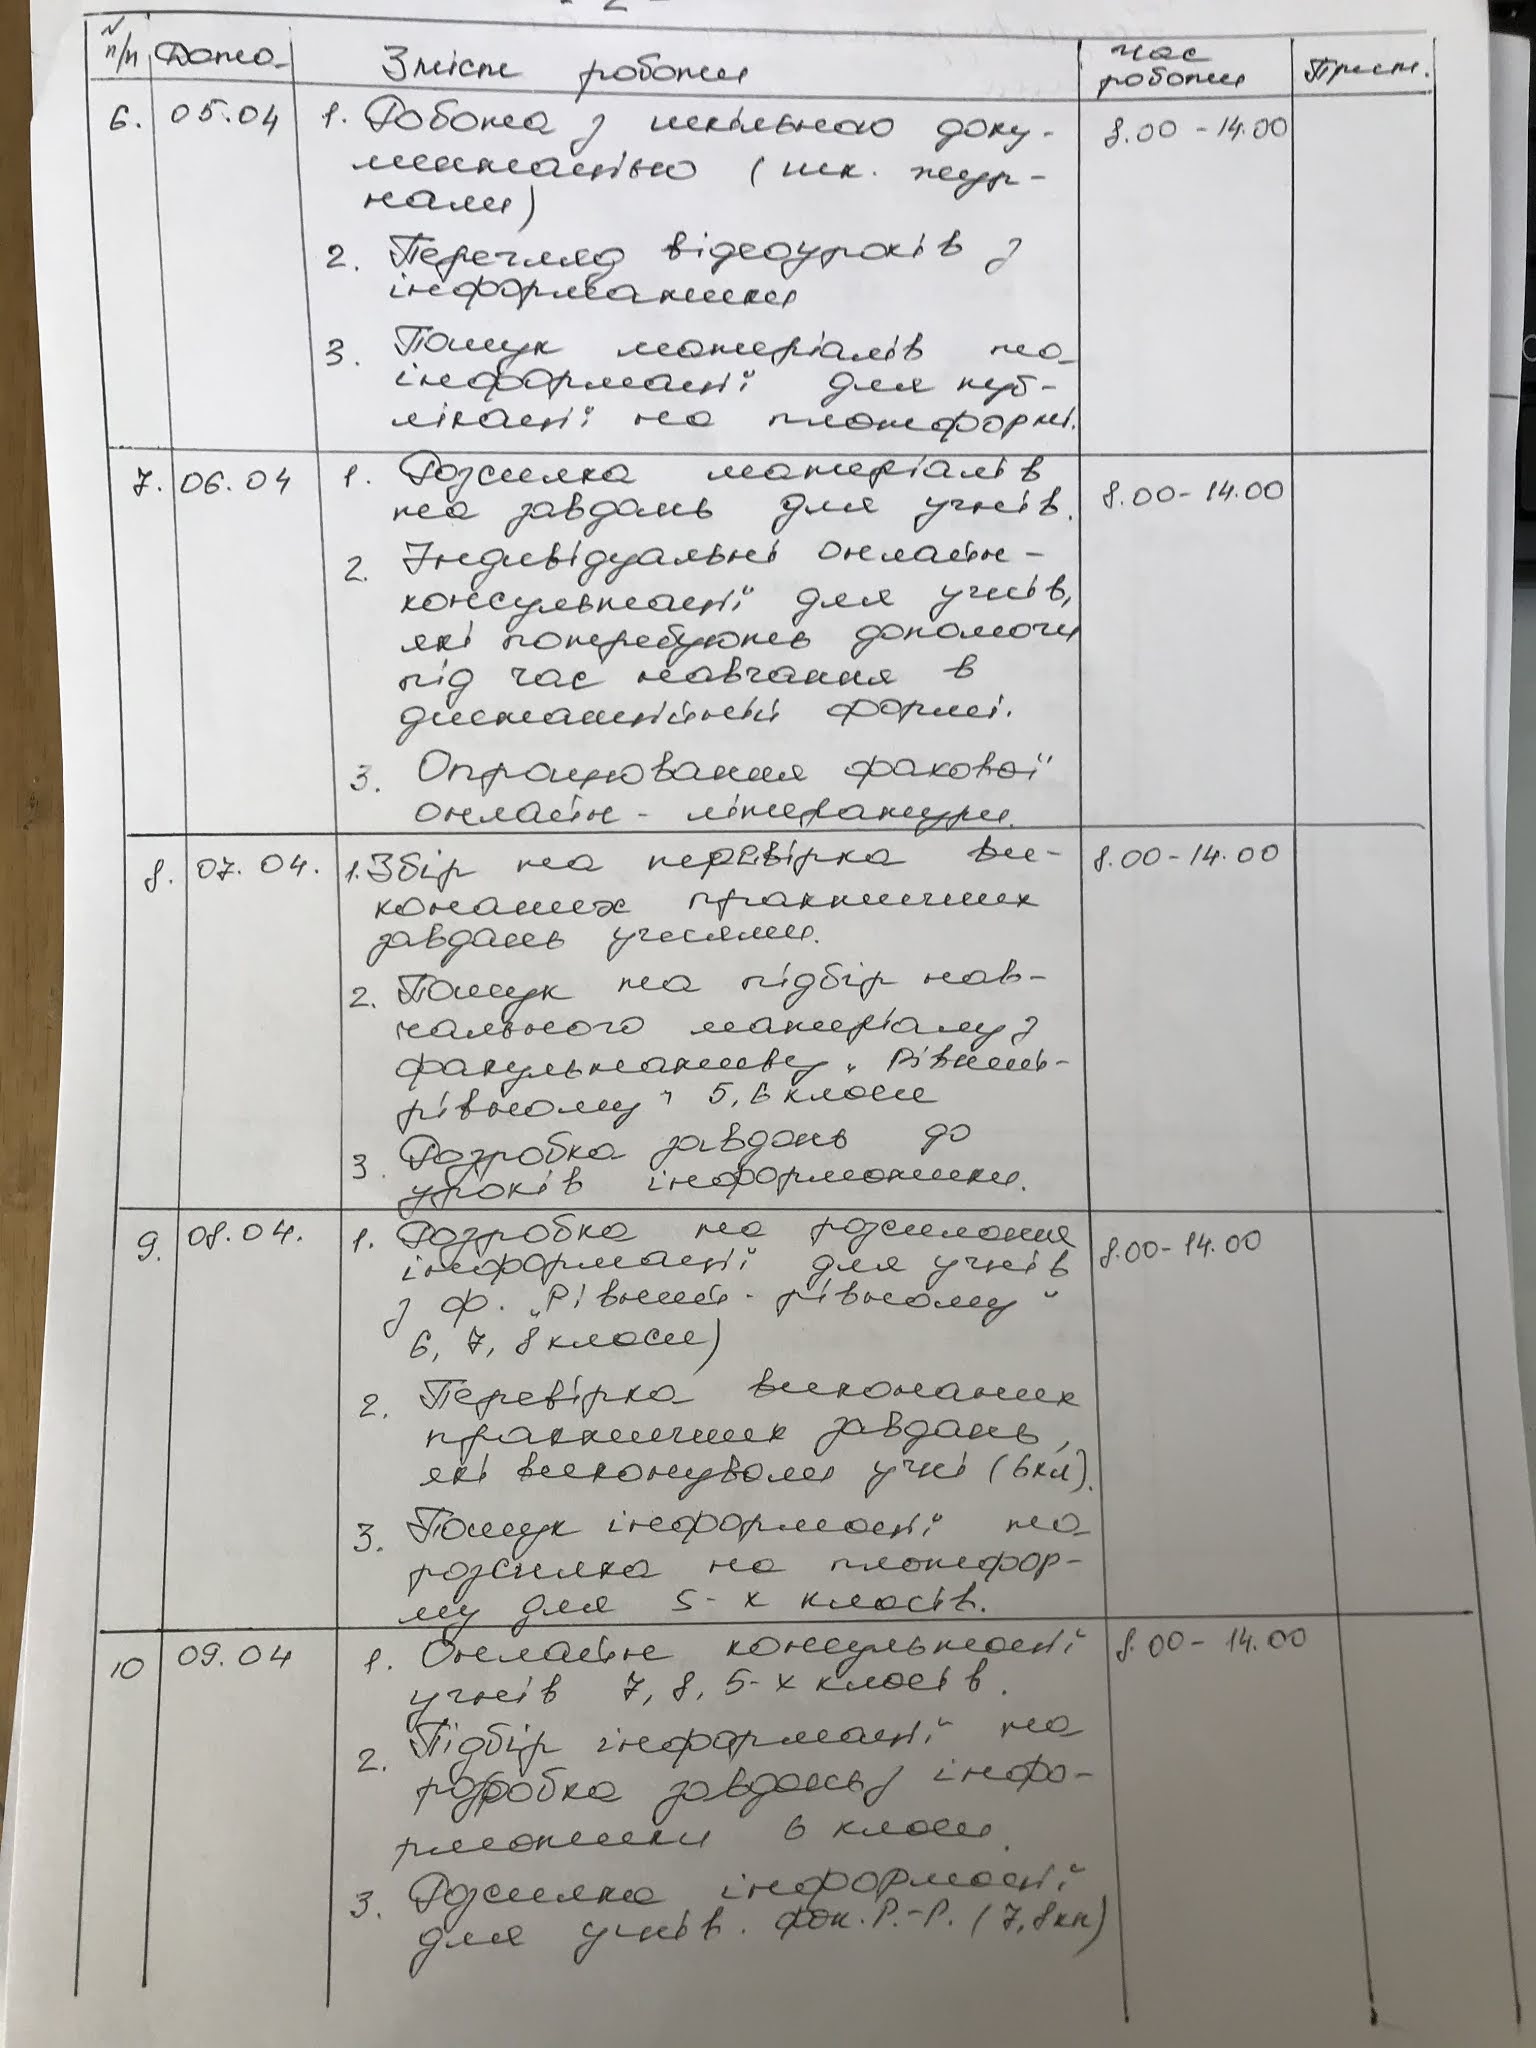 - 2 -
N п/п Дата Зміст роботи Час роботи Прим.
6. 05.04 1. Робота з шкільною доку- 8.00 - 14.00
ментацією (шк. жур-
нали)
2. Перегляд відеоуроків з
інформатики
3. Пошук матеріалів та
інформації для пуб-
лікації на платформі.
7. 06.04 1. Розсилка матеріалів 8.00 - 14.00
та завдань для учнів.
2. Індивідуальні онлайн-
консультації для учнів,
які потребують допомоги
під час навчання в
дистанційній формі.
3. Опрацювання фахової
онлайн - літератури.
8. 07.04. 1. Збір та перевірка ви- 8.00 - 14.00
конаних практичних
завдань учнями.
2. Пошук та підбір нав-
чального матеріалу з
факультативу „Рівний-
рівному" 5, 6 класи
3. Розробка завдань до
уроків інформатики.
9. 08.04. 1. Розробка та розсилання 8.00 - 14.00
інформації для учнів
з ф. „Рівний - рівному"
6, 7, 8 класи)
2. Перевірка виконаних
практичних завдань,
які виконували учні (6кл).
3. Пошук інформації та
розсилка на платфор-
му для 5-х класів.
10 09.04 1. Онлайн консультації 8.00 - 14.00
учнів 7, 8, 5-х класів.
2. Підбір інформації та
розробка завдань з інфо-
рматики 6 класи.
3. Розсилка інформації
для учнів. фак. Р.-Р. (7, 8кл)